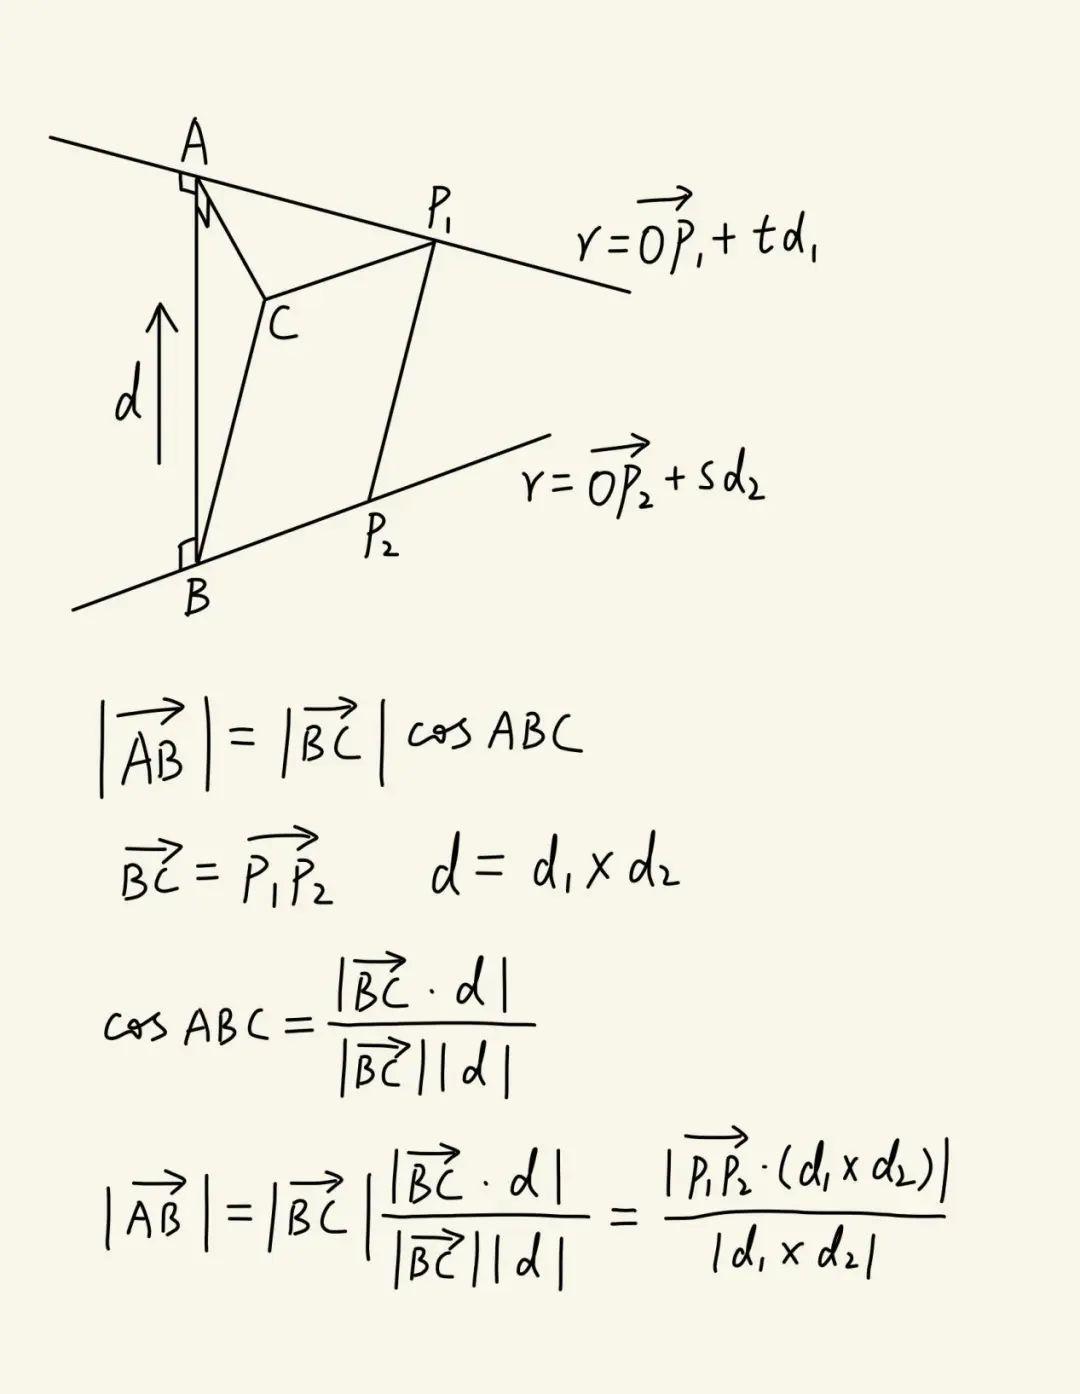 A
P₁
r = \overrightarrow{OP₁} + td₁
C
d
r = \overrightarrow{OP₂} + sd₂
P₂
B
|\overrightarrow{AB}| = |\overrightarrow{BC}| cos ABC
\overrightarrow{BC} = \overrightarrow{P₁P₂}    d = d₁ × d₂
cos ABC = \frac{|\overrightarrow{BC} · d|}{|\overrightarrow{BC}||d|}
|\overrightarrow{AB}| = |\overrightarrow{BC}| \frac{|\overrightarrow{BC} · d|}{|\overrightarrow{BC}||d|} = \frac{|\overrightarrow{P₁P₂} · (d₁ × d₂)|}{|d₁ × d₂|}